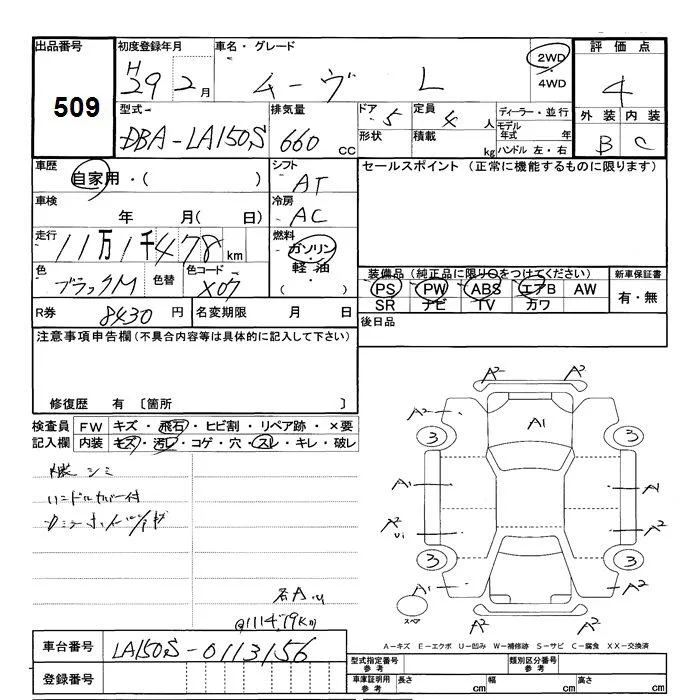 出品番号
509
初度登録年月
H29 2月
車名・グレード
ムーヴ L
2WD
4WD
評価点
4
外装 内装
B C
型式
DBA-LA150S
排気量
660 CC
ドア 5
形状
定員 4 人
積載 kg
ディーラー・並行
モデル年式 年
ハンドル 左・右
車歴
自家用・( )
シフト
AT
セールスポイント (正常に機能するものに限ります)
車検
年 月( 日)
冷房
AC
走行
11万1千478km
燃料
ガソリン
軽油
( )
色
ブラックM
色替
色コード
X07
装備品(純正品に限り○をつけてください)
PS PW ABS エアB AW
SR ナビ TV カワ
新車保証書
有・無
R券 8430 円
名変期限 月 日
後日品
注意事項申告欄(不具合内容等は具体的に記入して下さい)
修復歴 有 〔箇所 〕
検査員
記入欄
FW キズ・飛石・ヒビ割・リペア跡・×要
内装 キズ・汚レ・コゲ・穴・スレ・キレ・破レ
シミ
ハンドルカバー付
@111479Km
A2 A2
A2 A1
3 3
A1 A1
A2 A2
Ui
3 3
A1 A2
A2 A2
スペア
A-キズ E-エクボ U-凹み W-補修跡 S-サビ C-腐食 XX-交換済
車台番号 LA150S-0113156
登録番号
型式指定番号
参考
類別区分番号
参考
車庫証明用
参考
長さ cm 幅 cm 高さ cm